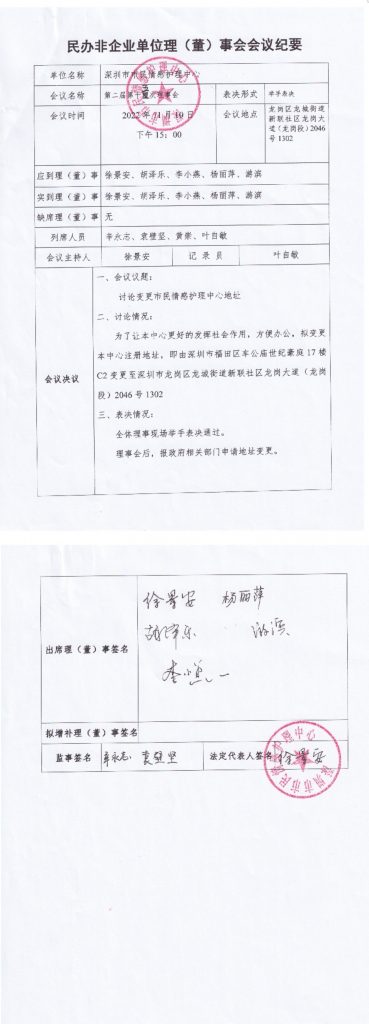 民办非企业单位理（董）事会会议纪要
单位名称 深圳市市民情感护理中心
会议名称 第二届第十 次理事会 表决形式 举手表决
会议时间 2022 年 11 月 10 日 下午 15：00 会议地点 龙岗区龙城街道新联社区龙岗大道（龙岗段）2046 号 1302
应到理（董）事 徐景安、胡泽乐、李小燕、杨丽萍、游滨
实到理（董）事 徐景安、胡泽乐、李小燕、杨丽萍、游滨
缺席理（董）事 无
列席人员 辛永志、袁壁坚、黄崇、叶自敏
会议主持人 徐景安 记 录 员 叶自敏
会议决议
一、会议议题：
讨论变更市民情感护理中心地址
二、讨论情况：
为了让本中心更好的发挥社会作用，方便办公，拟变更
本中心注册地址，即由深圳市福田区车公庙世纪豪庭 17 楼
C2 变更至深圳市龙岗区龙城街道新联社区龙岗大道（龙岗
段）2046 号 1302
三、表决情况：
全体理事现场举手表决通过。
理事会后，报政府相关部门申请地址变更。
出席理（董）事签名
徐景安 杨丽萍
胡泽乐 游滨
李小燕
拟增补理（董）事签名
监事签名 辛永志 袁壁坚 法定代表人签名 徐景安
深圳市市民情感护理中心